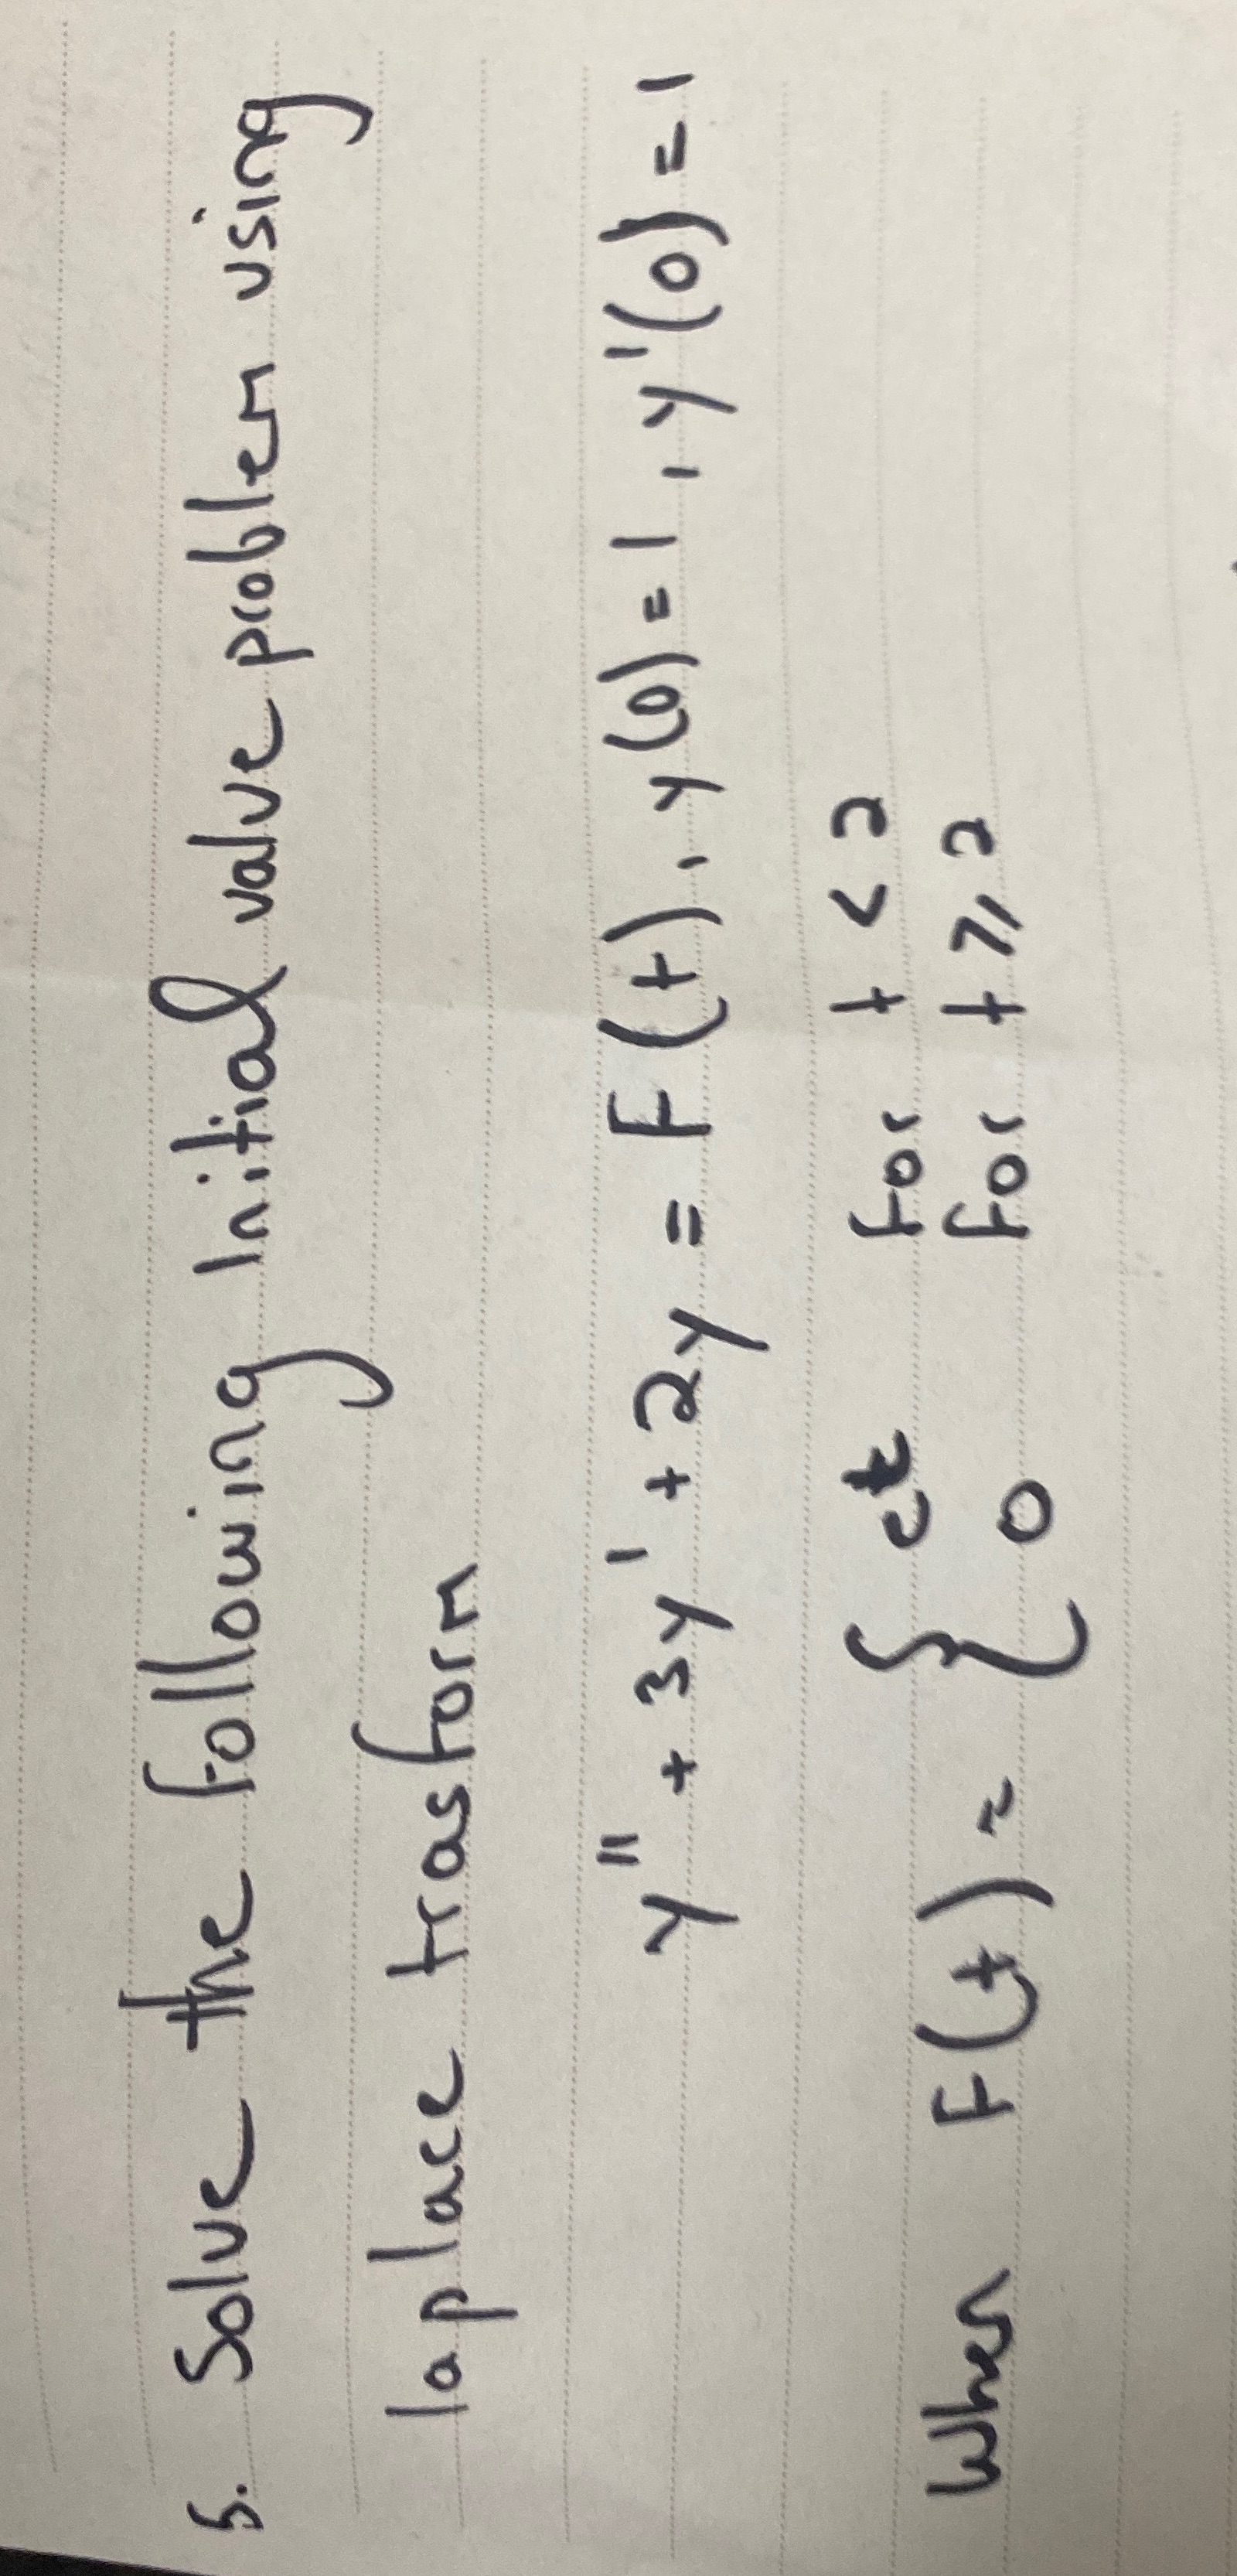 5. Solve the following Initial value problem using
laplace trasform
y'' + 3y' + 2y = F(t), y(0) = 1, y'(0) = 1
When F(t) = { e^t for t < 2
0 for t ≥ 2